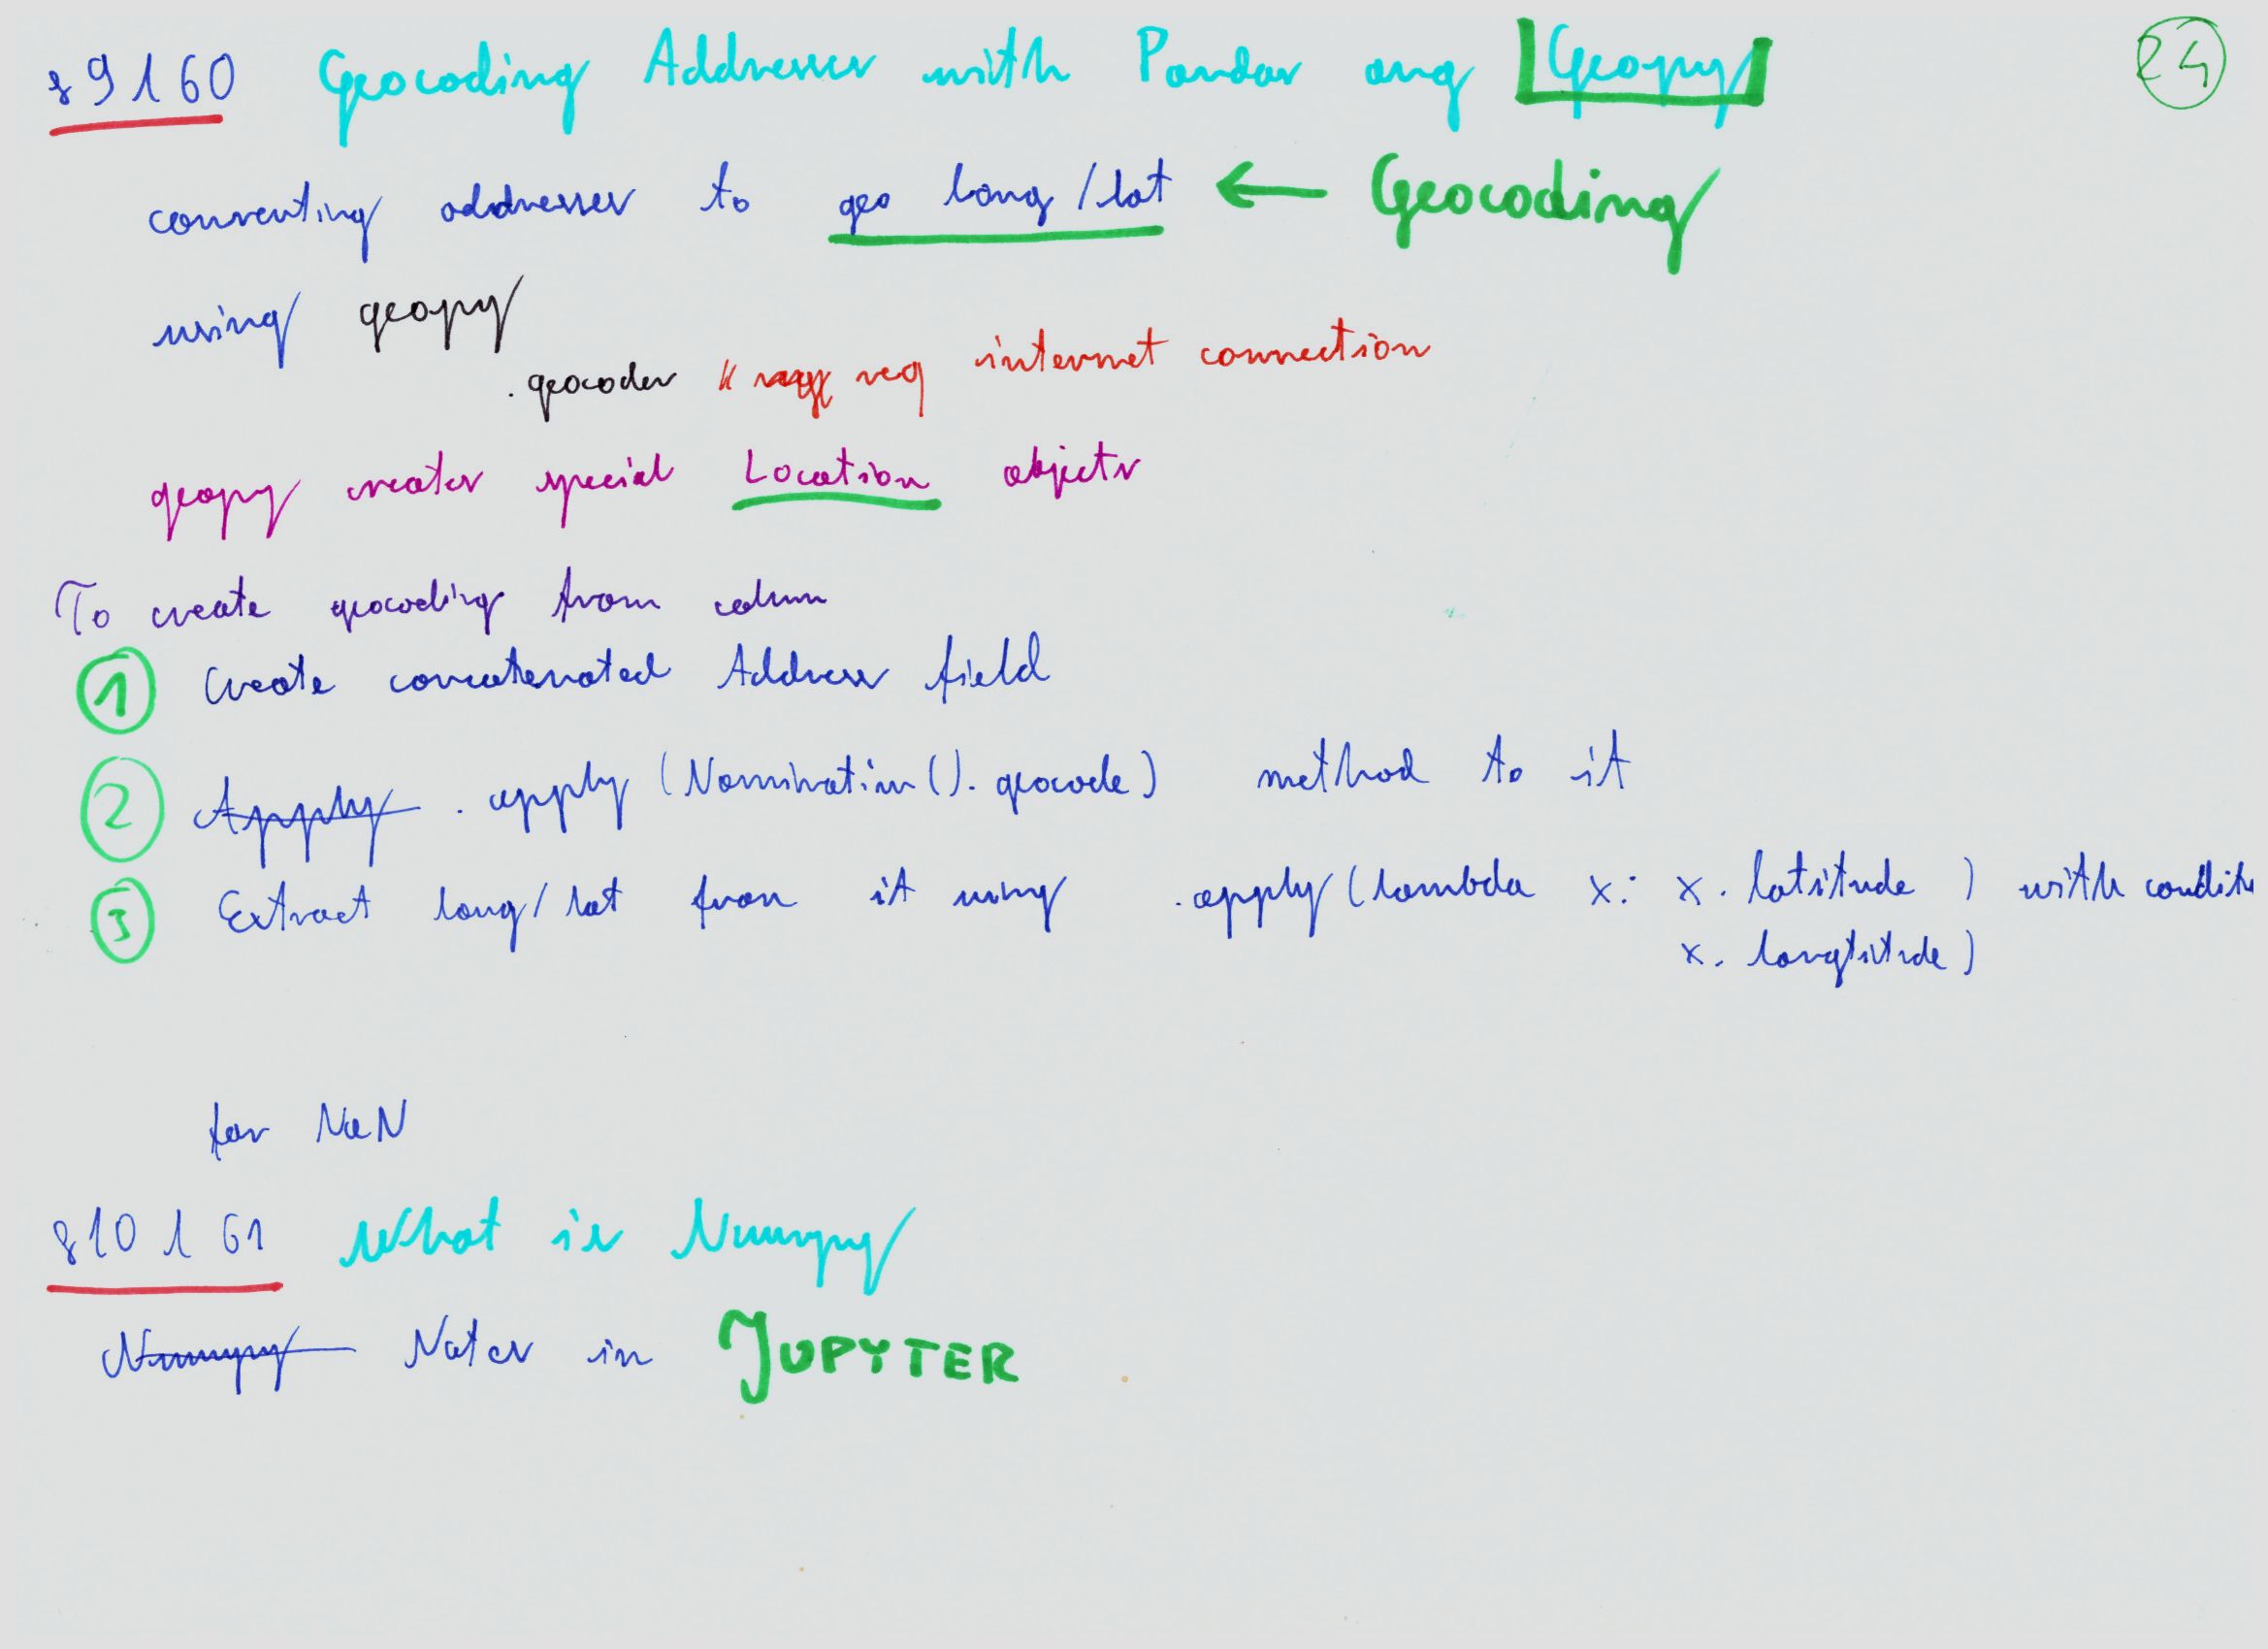 §9 160 Geocoding Addresses with Pandas ang Geopy 24
converting addresses to geo long/lat ← Geocoding
using geopy
.geocoder req internet connection
geopy creates special Location objects
To create geocoding from colum
1 Create concatenated Address field
2 Apply .apply (Nominatim().geocode) method to it
3 Extract long/lat from it using .apply(lambda x: x.latsitude ) with condit
x.longtsitude)
for NaN
§10 161 What is Numpy
Numpy Notes in JUPYTER